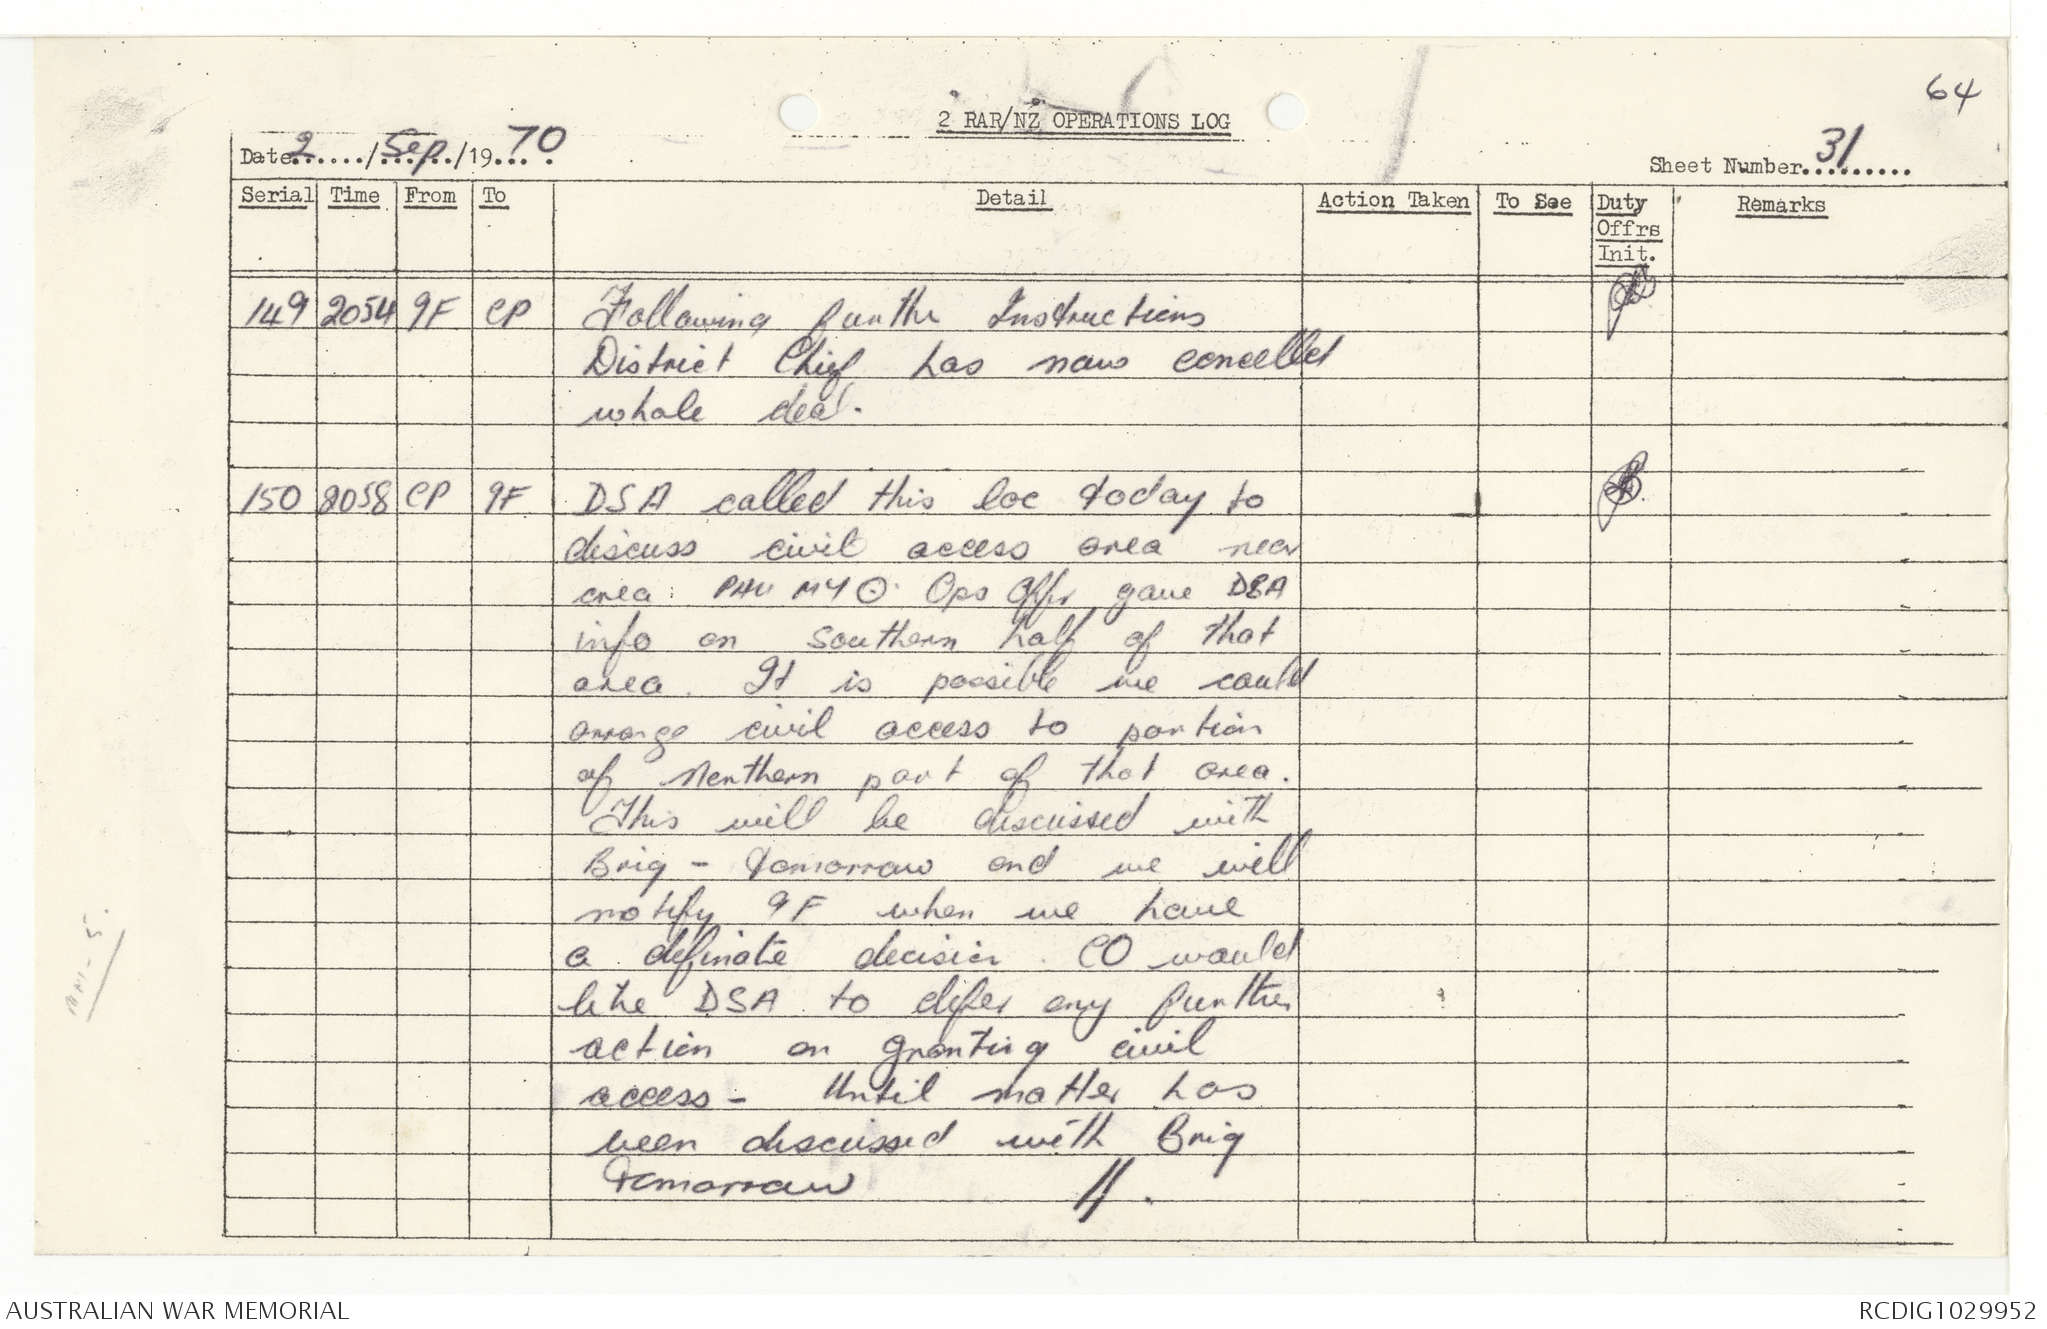 64
2 RAR/NZ OPERATIONS LOG
Date 2 /Sep/19 70
Sheet Number 31
Serial Time From To Detail Action Taken To See Duty Offrs Init. Remarks
149 2054 9F CP Following further Instructions
District Chief has now cancelled
whole deal.
150 2058 CP 9F DSA called this loc today to
discuss civil access area near
area: PHU MY ⊙. Ops Offr gave DSA
info on southern half of that
area. It is possible we could
arrange civil access to portion
of Northern part of that area.
This will be discussed with
Brig - tomorrow and we will
notify 9F when we have
a definate decision. CO would
like DSA to difer any further
action on granting civil
access - Until matter has
been discussed with Brig
tomorrow //.
AUSTRALIAN WAR MEMORIAL
RCDIG1029952